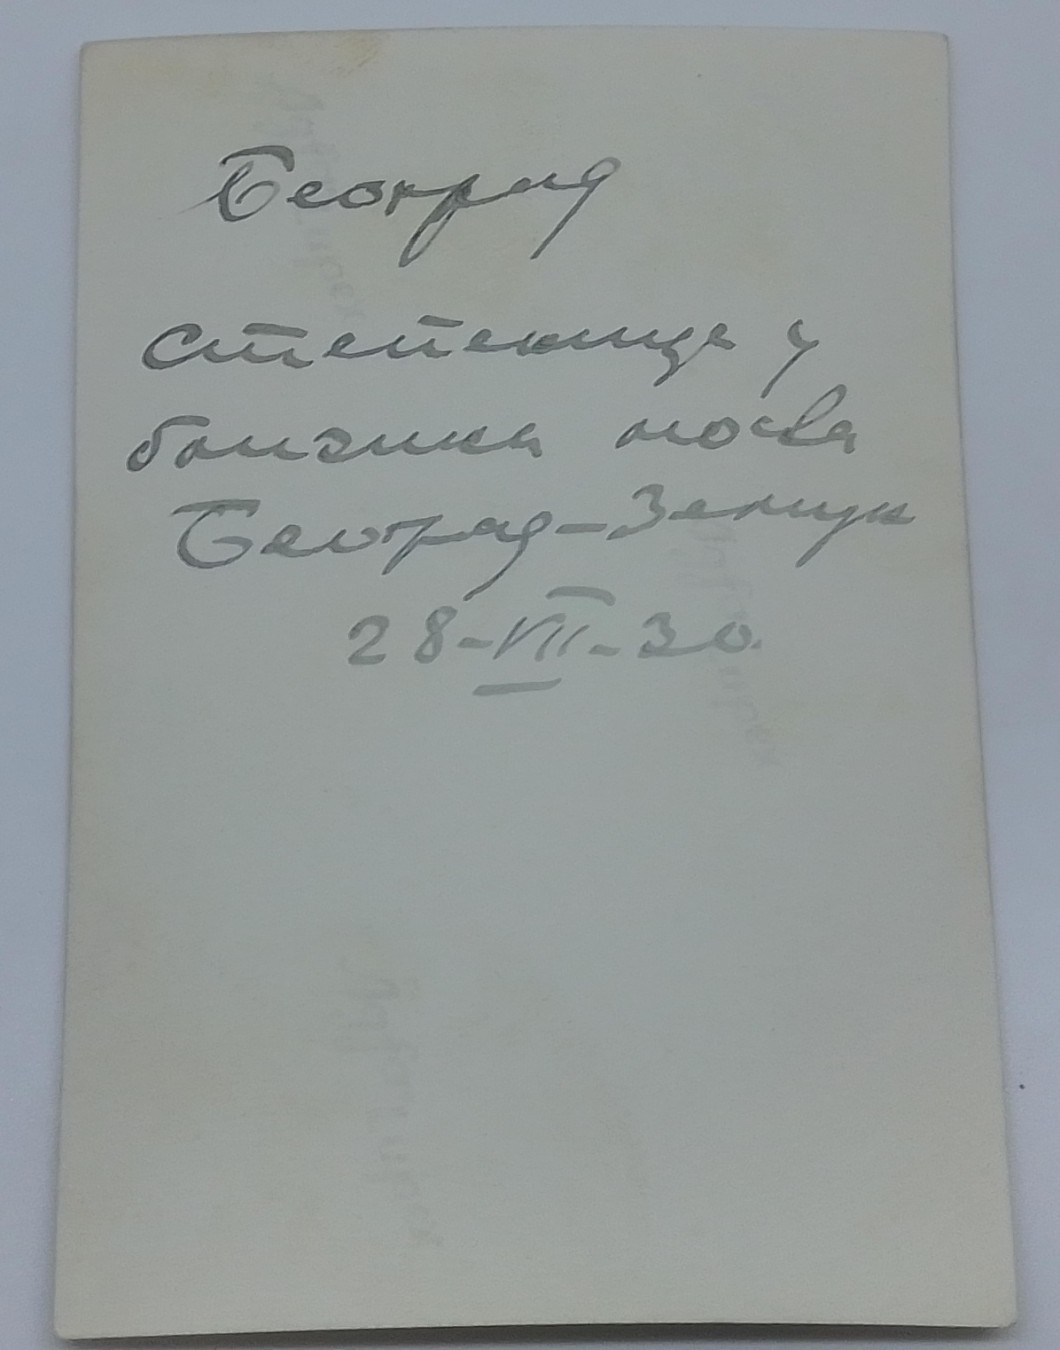 Београд
степенице у
близина моста
Београд-Земун
28-VII-30.